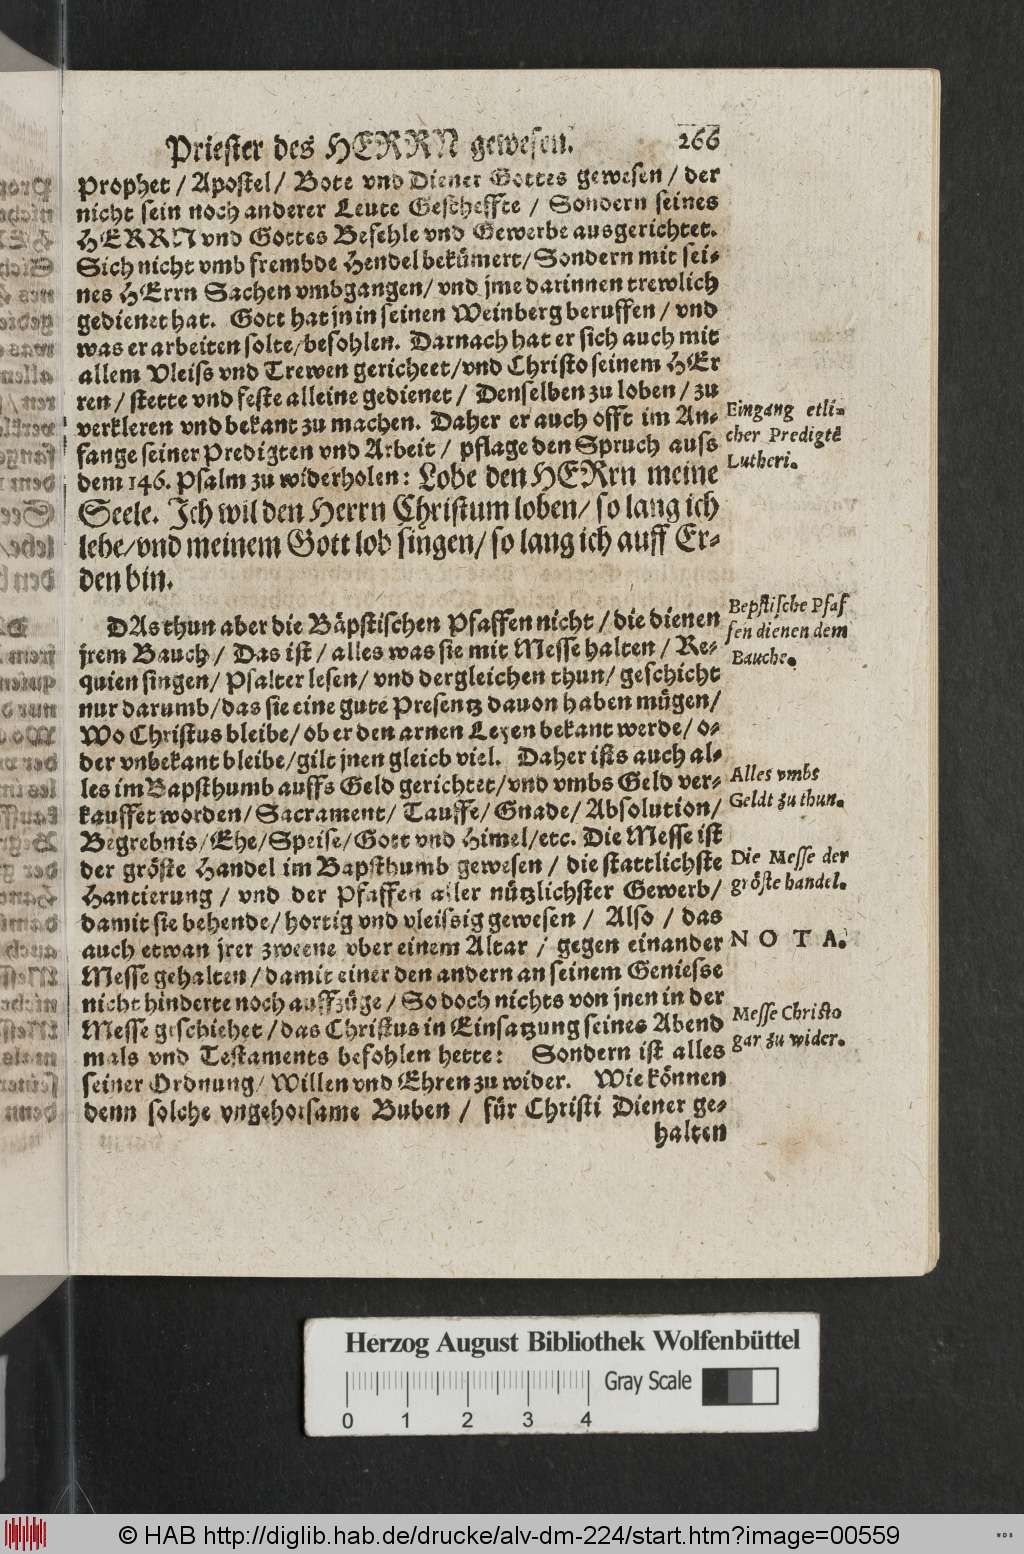 Priester des HERRN gewesen. 266
Prophet / Apostel / Bote vnd Diener Gottes gewesen / der
nicht sein noch anderer Leute Gescheffte / Sondern seines
HERRN vnd Gottes Befehle vnd Gewerbe ausgerichtet.
Sich nicht vmb frembde Hendel bekümert / Sondern mit sei-
nes HErrn Sachen vmbgangen / vnd jme darinnen trewlich
gedienet hat. Gott hat jn in seinen Weinberg beruffen / vnd
was er arbeiten solte / befohlen. Darnach hat er sich auch mit
allem Vleiss vnd Trewen gericheet / vnd Christo seinem HEr
ren / stette vnd feste alleine gedienet / Denselben zu loben / zu
verkleren vnd bekant zu machen. Daher er auch offt im An-
fange seiner Predigten vnd Arbeit / pflage den Spruch auss
dem 146. Psalm zu widerholen: Lobe den HERrn meine
Seele. Ich wil den Herrn Christum loben / so lang ich
lebe / vnd meinem Gott lob singen / so lang ich auff Er-
den bin.
Eingang etli-
cher Predigtē
Lutheri.
DAs thun aber die Bäpstischen Pfaffen nicht / die dienen
jrem Bauch / Das ist / alles was sie mit Messe halten / Re-
quien singen / Psalter lesen / vnd dergleichen thun / geschicht
nur darumb / das sie eine gute Presentz dauon haben mügen /
Wo Christus bleibe / ob er den arnen Leyen bekant werde / o-
der vnbekant bleibe / gilt jnen gleich viel. Daher ists auch al-
les im Bapsthumb auffs Geld gerichtet / vnd vmbs Geld ver-
kauffet worden / Sacrament / Tauffe / Gnade / Absolution /
Begrebnis / Ehe / Speise / Gott vnd Himel / etc. Die Messe ist
der gröste Handel im Bapsthumb gewesen / die stattlichste
Hantierung / vnd der Pfaffen aller nützlichster Gewerb /
damit sie behende / hortig vnd vleissig gewesen / Also / das
auch etwan jrer zweene vber einem Altar / gegen einander
Messe gehalten / damit einer den andern an seinem Geniesse
nicht hinderte noch auffzüge / So doch nichts von jnen in der
Messe geschiehet / das Christus in Einsatzung seines Abend
mals vnd Testaments befohlen hette: Sondern ist alles
seiner Ordnung / Willen vnd Ehren zu wider. Wie können
denn solche vngehorsame Buben / für Christi Diener ge-
halten
Bepstische Pfaf
fen dienen dem
Bauche.
Alles vmbs
Geldt zu thun.
Die Messe der
gröste handel.
NOTA.
Messe Christo
gar zu wider.
Herzog August Bibliothek Wolfenbüttel
Gray Scale
0 1 2 3 4
© HAB http://diglib.hab.de/drucke/alv-dm-224/start.htm?image=00559